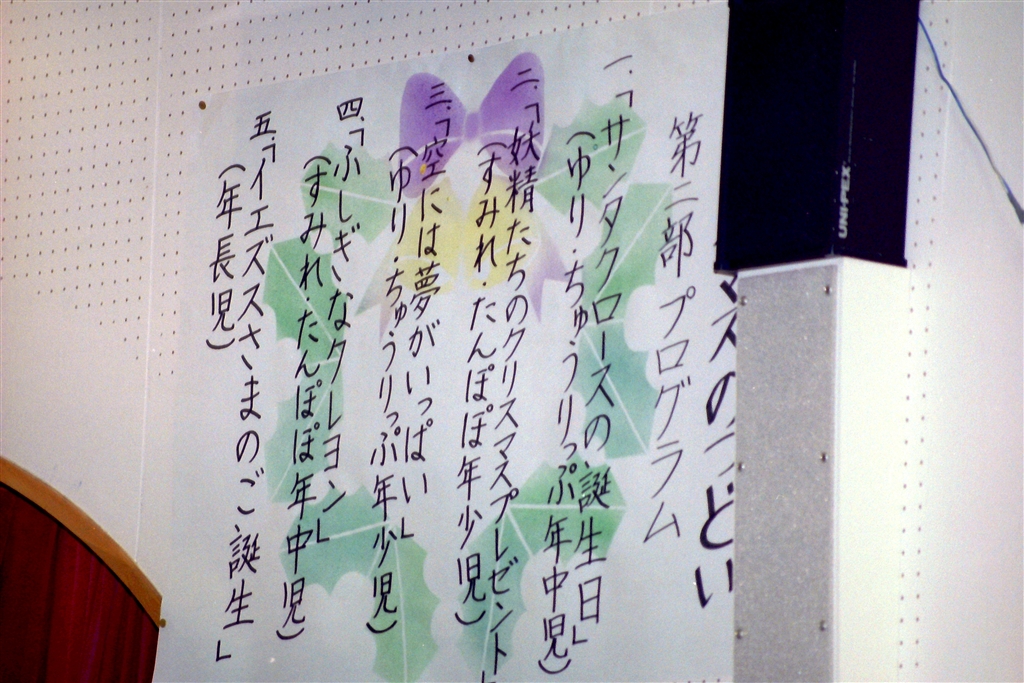 スのつどい
第二部 プログラム
一.「サンタクロースの誕生日」
(ゆり・ちゅうりっぷ年中児)
二.「妖精たちのクリスマスプレゼント」
(すみれ・たんぽぽ年少児)
三.「空には夢がいっぱい」
(ゆり・ちゅうりっぷ年少児)
四.「ふしぎなクレヨン」
(すみれ・たんぽぽ年中児)
五.「イエズスさまのご誕生」
(年長児)
UNI-PEX